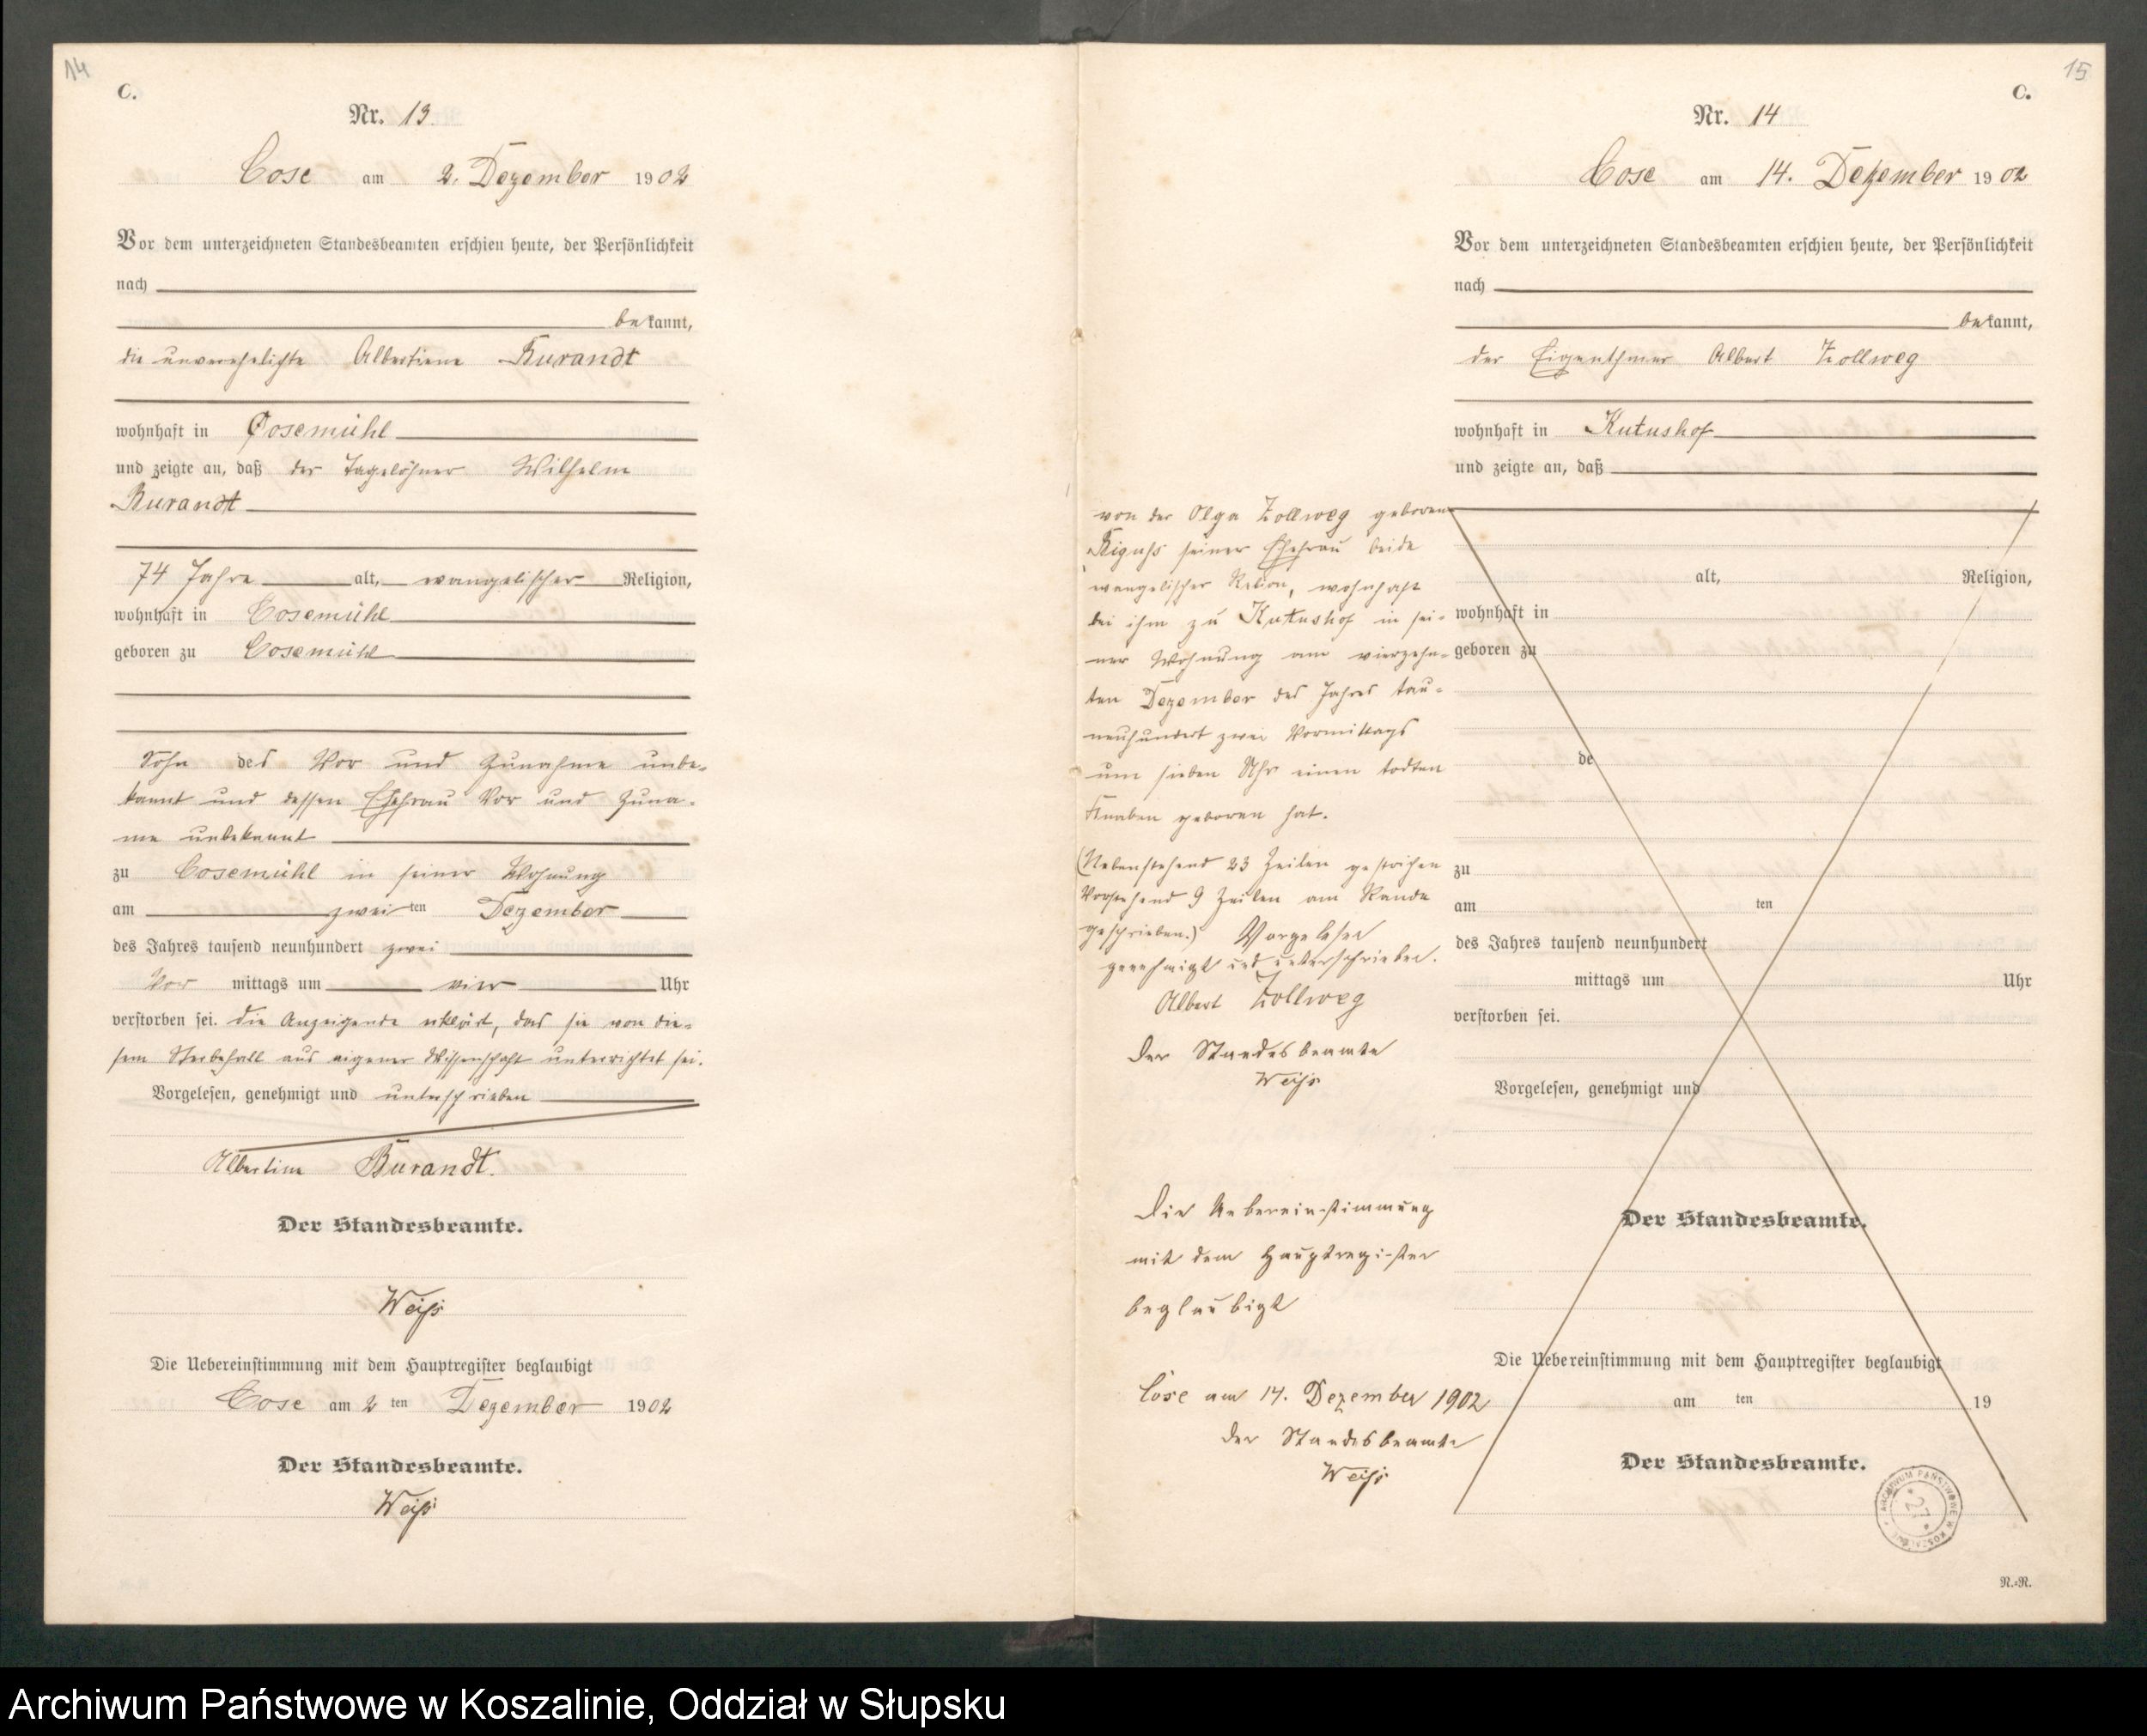 14
C.
Nr. 13.
Cose am 2. Dezember 1902
Vor dem unterzeichneten Standesbeamten erschien heute, der Persönlichkeit
nach
bekannt,
die unverehelichte Albertiene Burandt
wohnhaft in Cosemühl
und zeigte an, daß der Tagelöhner Wilhelm
Burandt
74 Jahre alt, evangelischer Religion,
wohnhaft in Cosemühl
geboren zu Cosemühl
Sohn des Vor und Zunahme unbe-
kannt und dessen Ehefrau Vor und Zuna-
me unbekannt
zu Cosemühl in seiner Wohnung
am zwei ten Dezember
des Jahres tausend neunhundert zwei
Vor mittags um vier Uhr
verstorben sei. Die Anzeigende erklärt, das sie von die-
sem Sterbefall aus eigener Wissenschaft unterrichtet sei.
Vorgelesen, genehmigt und unterschrieben
Albertine Burandt.
Der Standesbeamte.
Weiß
Die Uebereinstimmung mit dem Hauptregister beglaubigt
Cose am 2 ten Dezember 1902
Der Standesbeamte.
Weiß
15
C.
Nr. 14
Cose am 14. Dezember 1902
Vor dem unterzeichneten Standesbeamten erschien heute, der Persönlichkeit
nach
bekannt,
der Eigenthmer Albert Zollweg
wohnhaft in Kutushof
und zeigte an, daß
von der Olga Zollweg geboren
seiner Ehefrau beide
evangelischer Relion, wohnhaft
bei ihm zu Kutushof in sei-
ner Wohnung am vierzehn-
ten Dezember des Jahres tau-
neuhundert zwei Vormittags
um sieben Uhr einen todten
Knaben geboren hat.
(Nebenstehend 23 Zeilen gestrichen
Vorstehend 9 Zeilen am Rande
geschrieben.) Vorgelesen
genehmigt und unterschrieben.
Albert Zollweg
Der Standesbeamte
Weiß
Die Uebereinstimmung
mit dem Hauptregister
beglaubigt
Cose am 14. Dezember 1902
Der Standesbeamte
Weiß
alt, Religion,
wohnhaft in
geboren zu
de
zu
am ten
des Jahres tausend neunhundert
mittags um Uhr
verstorben sei.
Vorgelesen, genehmigt und
Der Standesbeamte.
Die Uebereinstimmung mit dem Hauptregister beglaubigt
am ten 19
Der Standesbeamte.
ARCHIWUM PAŃSTWOWE W KOSZALINIE
27
R.=R.
Archiwum Państwowe w Koszalinie, Oddział w Słupsku